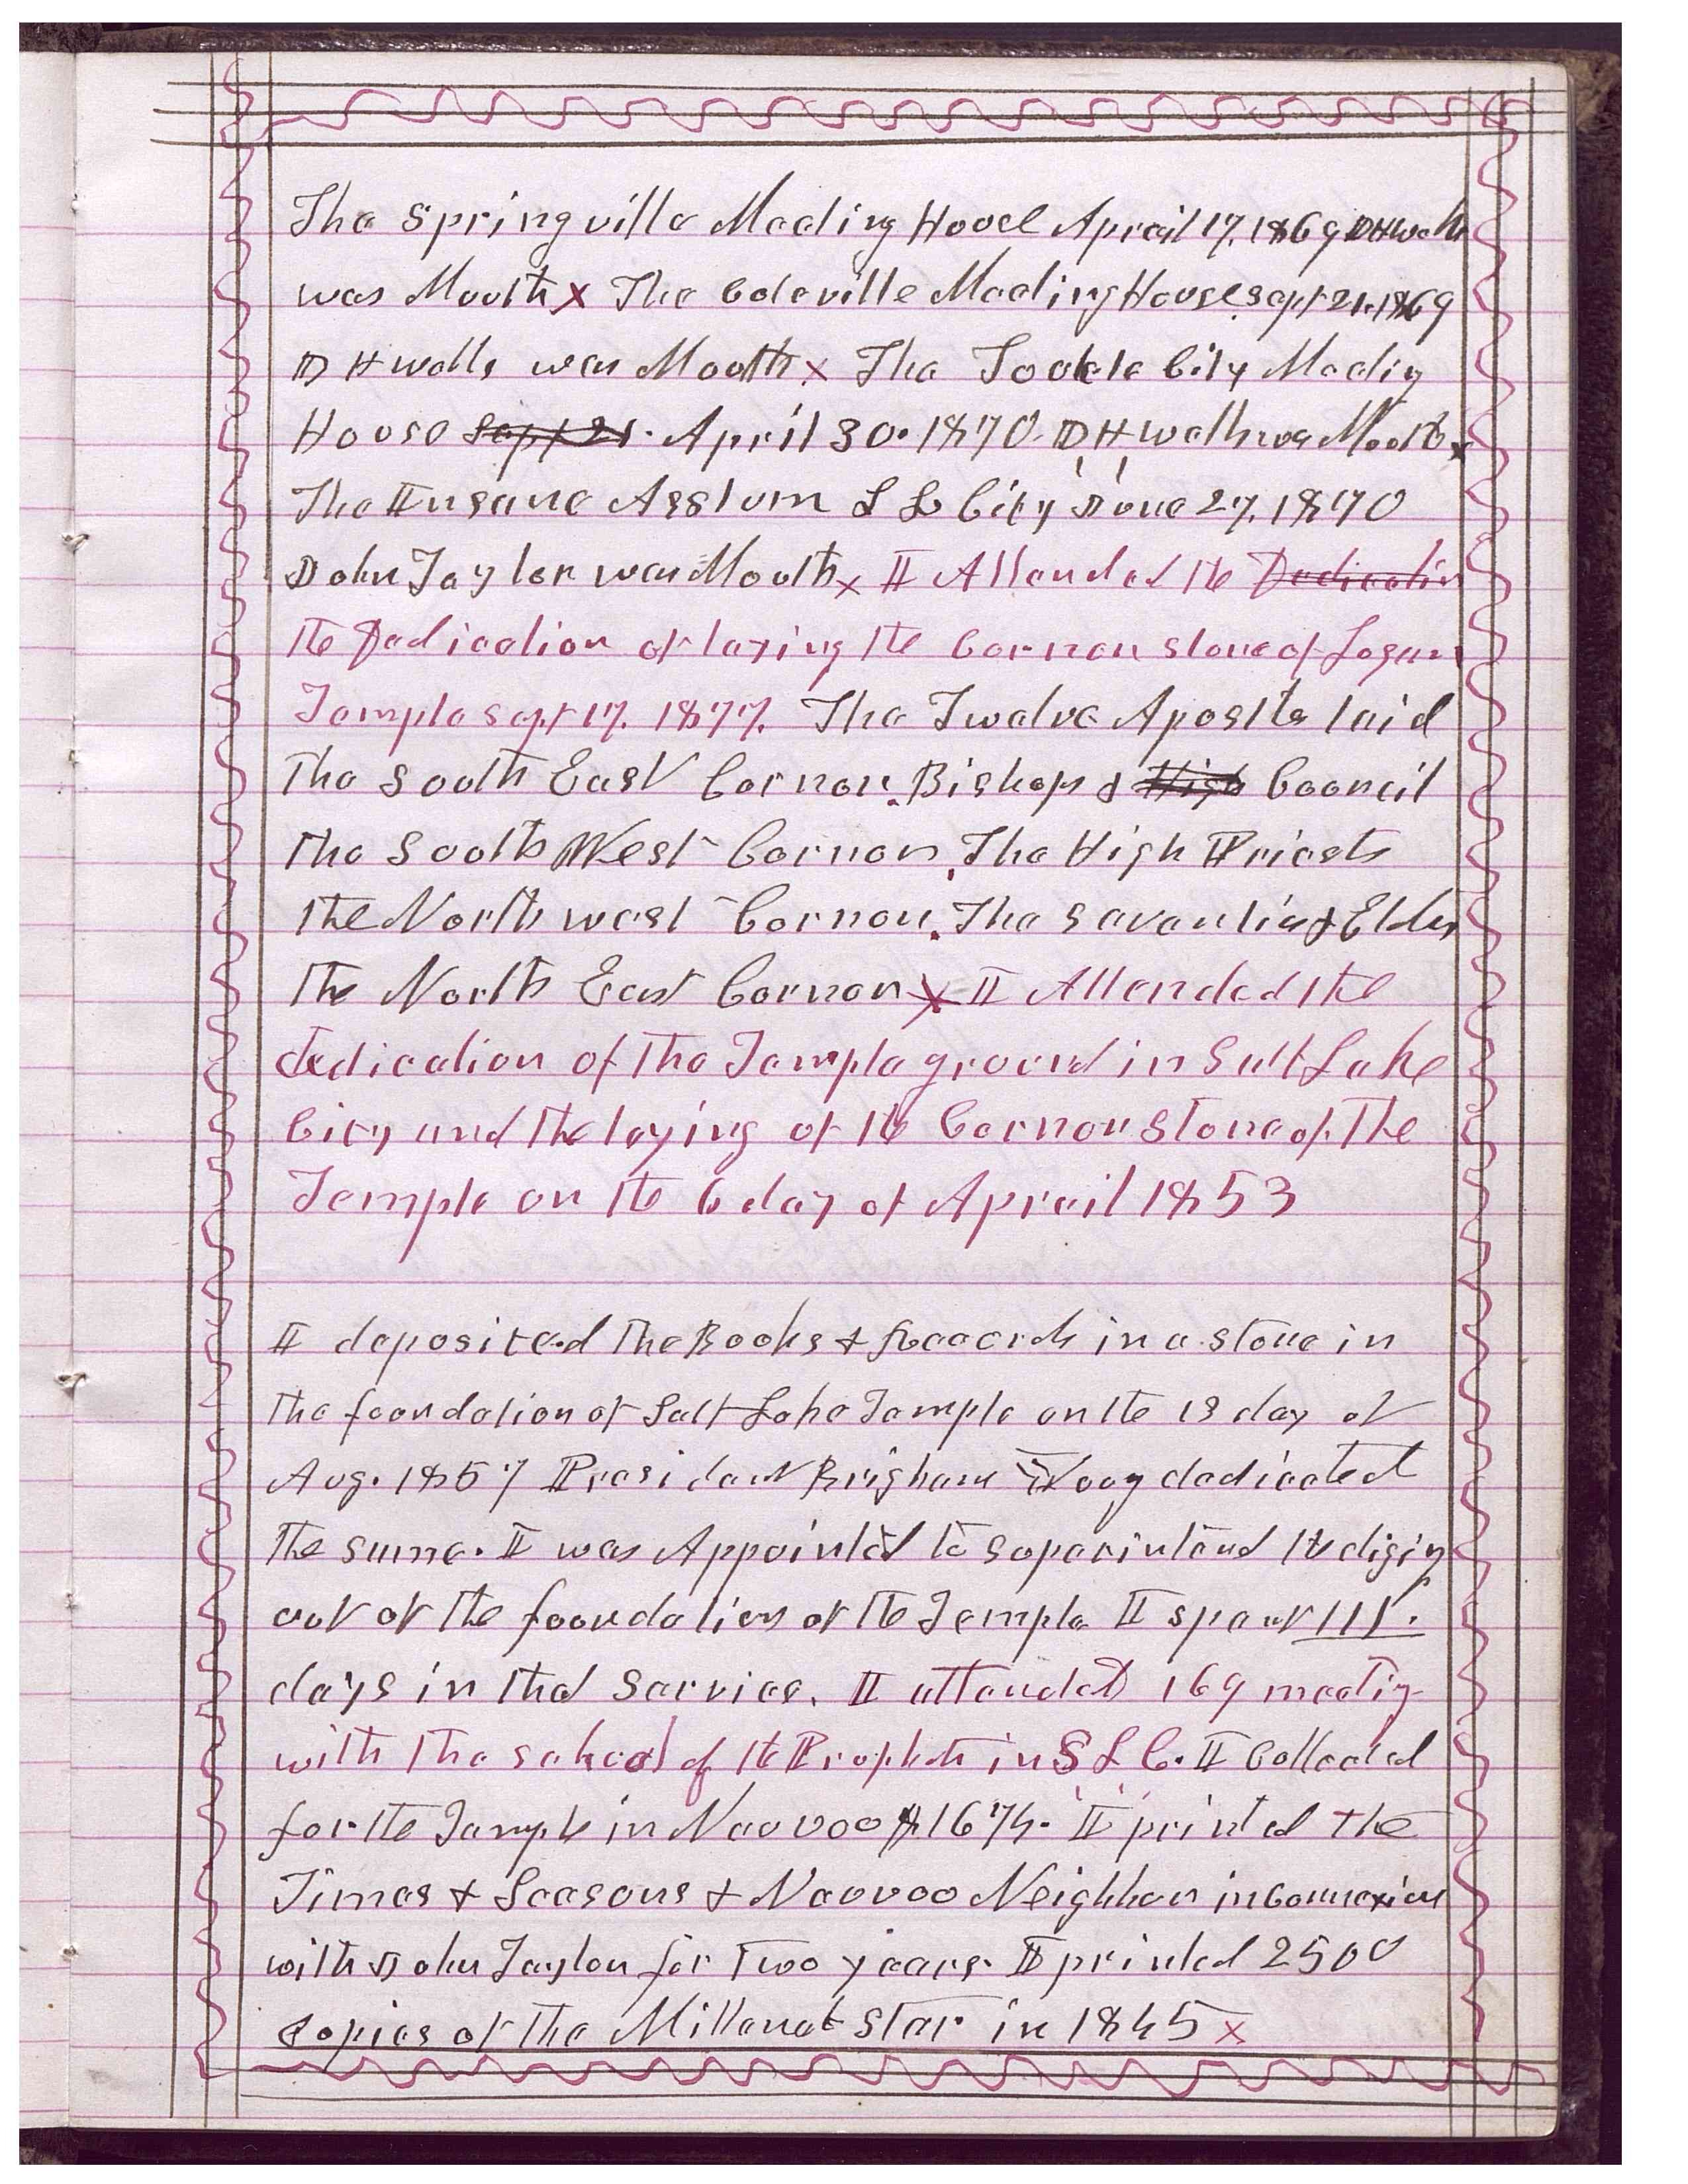 The Springville Meeting House April 17, 1869 D H Wells
was Mouth X The Coleville Meeting House Sept 21, 1869
D H Wells was Mouth X The Tooele City Meeting
House Sept 21. April 30. 1870. D H Wells was Mouth X
The Insane Asslum S L City June 27, 1870
John Taylor was Mouth X I Attended the Dedication
the Dedication of laying the Corner stone of Logan
Temple Sept 17. 1877. The Twelve Apostles laid
the South East Corner. Bishops & High Council
the South West Corner, The High Priests
the North west Corner. The Seventies & Elders
the North East Corner X I Attended the
dedication of the Temple ground in Salt Lake
City and the laying of the Corner Stone of the
Temple on the 6 day of April 1853
I deposited The Books & Records in a stone in
the foundation of Salt Lake Temple on the 13 day of
Aug. 1857 President Brigham Young dedicated
the same. I was Appointed to Superintend the diging
out of the foundation of the Temple I spent 111
days in that Service. I attended 169 meeting
with the school of the Prophets in S L C. I Collected
for the Temple in Nauvoo $1674. I printed the
Times & Seasons & Nauvoo Neighbor in Connexion
with John Taylor for Two years. I printed 2500
copies of the Millenal Star in 1845 X